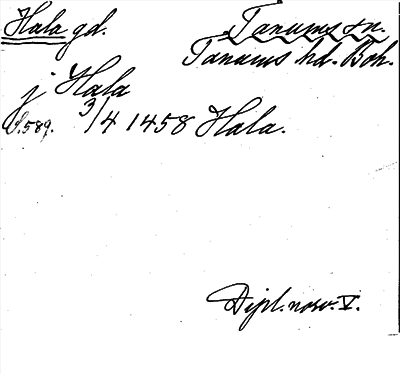 Hala gd. Tanums sn.
Tanums hd. Boh.
j Hala
S.589. 3/4 1458 Hala.
Dipl. norv. V.